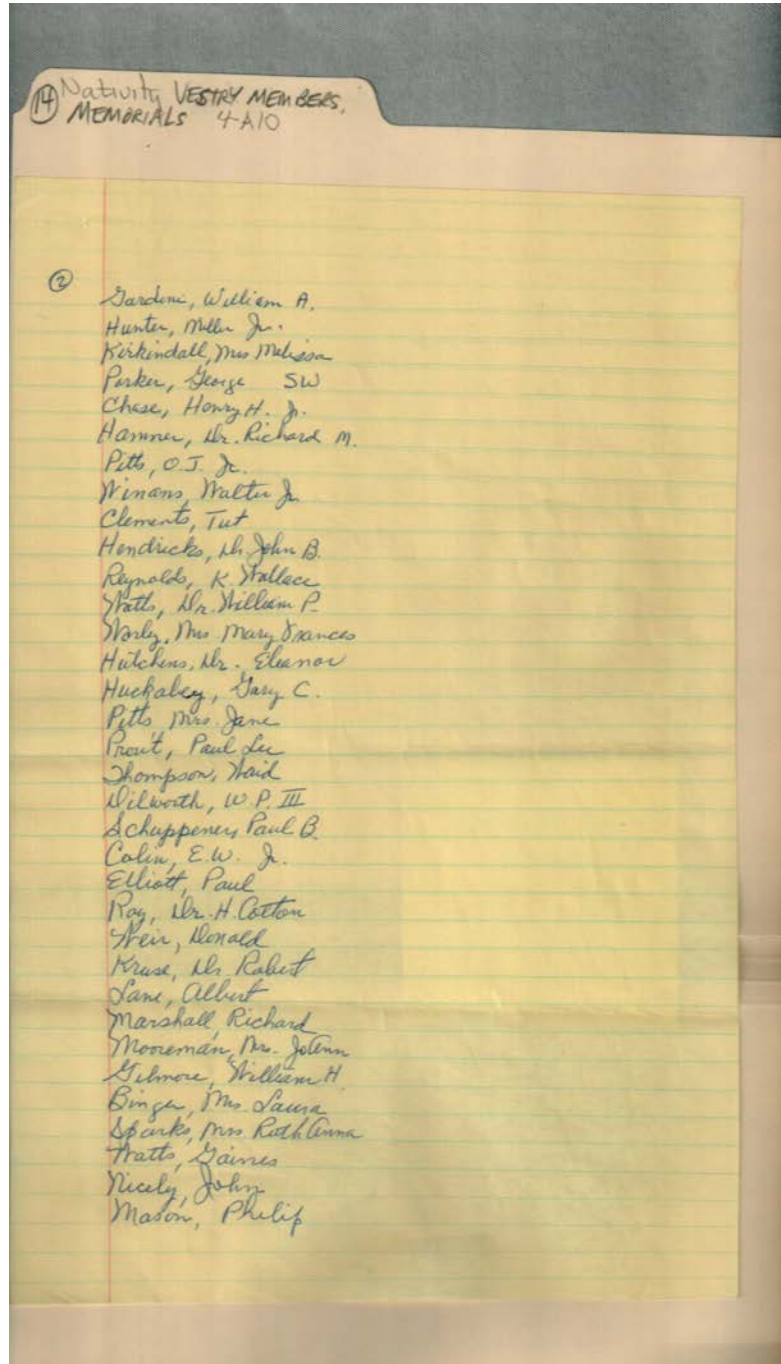 14 Nativity VESTRY MEMBERS,
MEMORIALS 4-A10
2
Gardini, William A.
Hunter, Miller Jr.
Kirkindall, Mrs Melissa
Parker, George SW
Chase, Henry H. Jr.
Hamner, Dr. Richard M.
Pitts, O.J. Jr.
Winans, Walter Jr
Clements, Tut
Hendricks, Dr. John B.
Reynolds, K. Wallace
Watts, Dr. William P.
Worley, Mrs Mary Frances
Hutchens, Dr. Eleanor
Huckabey, Gary C.
Pitts Mrs. Jane
Prout, Paul Lee
Thompson, Waid
Dilworth, W.P. III
Schuppener, Paul B.
Colin, E.W. Jr.
Elliott, Paul
Ray, Dr. H. Cotton
Weir, Donald
Kruse, Dr Robert
Lane, Albert
Marshall, Richard
Mooreman, Mrs. JoAnn
Gilmore, William H.
Binger, Mrs. Laura
Sparks, Mrs Ruth Anna
Watts, Gaines
Nicely, John
Mason, Philip